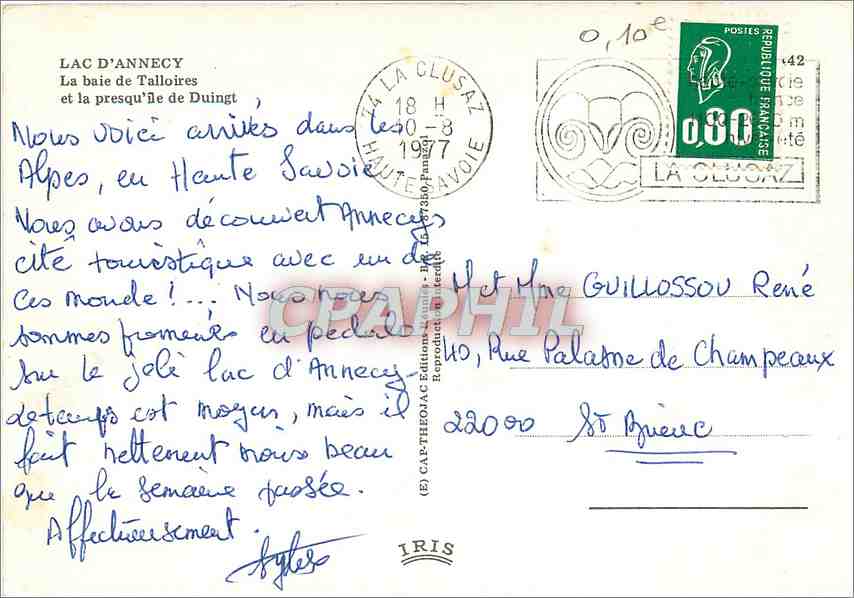 0,10€
LAC D'ANNECY
La baie de Talloires
et la presqu'île de Duingt
74 LA CLUSAZ
18 H
10-8
1977
HAUTE-SAVOIE
POSTES
REPUBLIQUE FRANÇAISE
0,80
LA CLUSAZ
Nous voici arrivés dans les
Alpes, en Haute Savoie.
Nous avons découvert Annecy,
cité touristique avec un de
ces monde ! ... Nous nous
sommes promenés en pedalo
sur le joli lac d'Annecy.
Le temps est moyen, mais il
fait nettement moins beau
que la semaine passée.
Affectueusement.
M et Mme GUILLOSSOU René
40, Rue Palasne de Champeaux
22000 St Brieuc
(E) CAP-THEOJAC Editions Réunies - B.P. 15 - 87350 Panazol
Reproduction interdite
IRIS
CPAPHIL